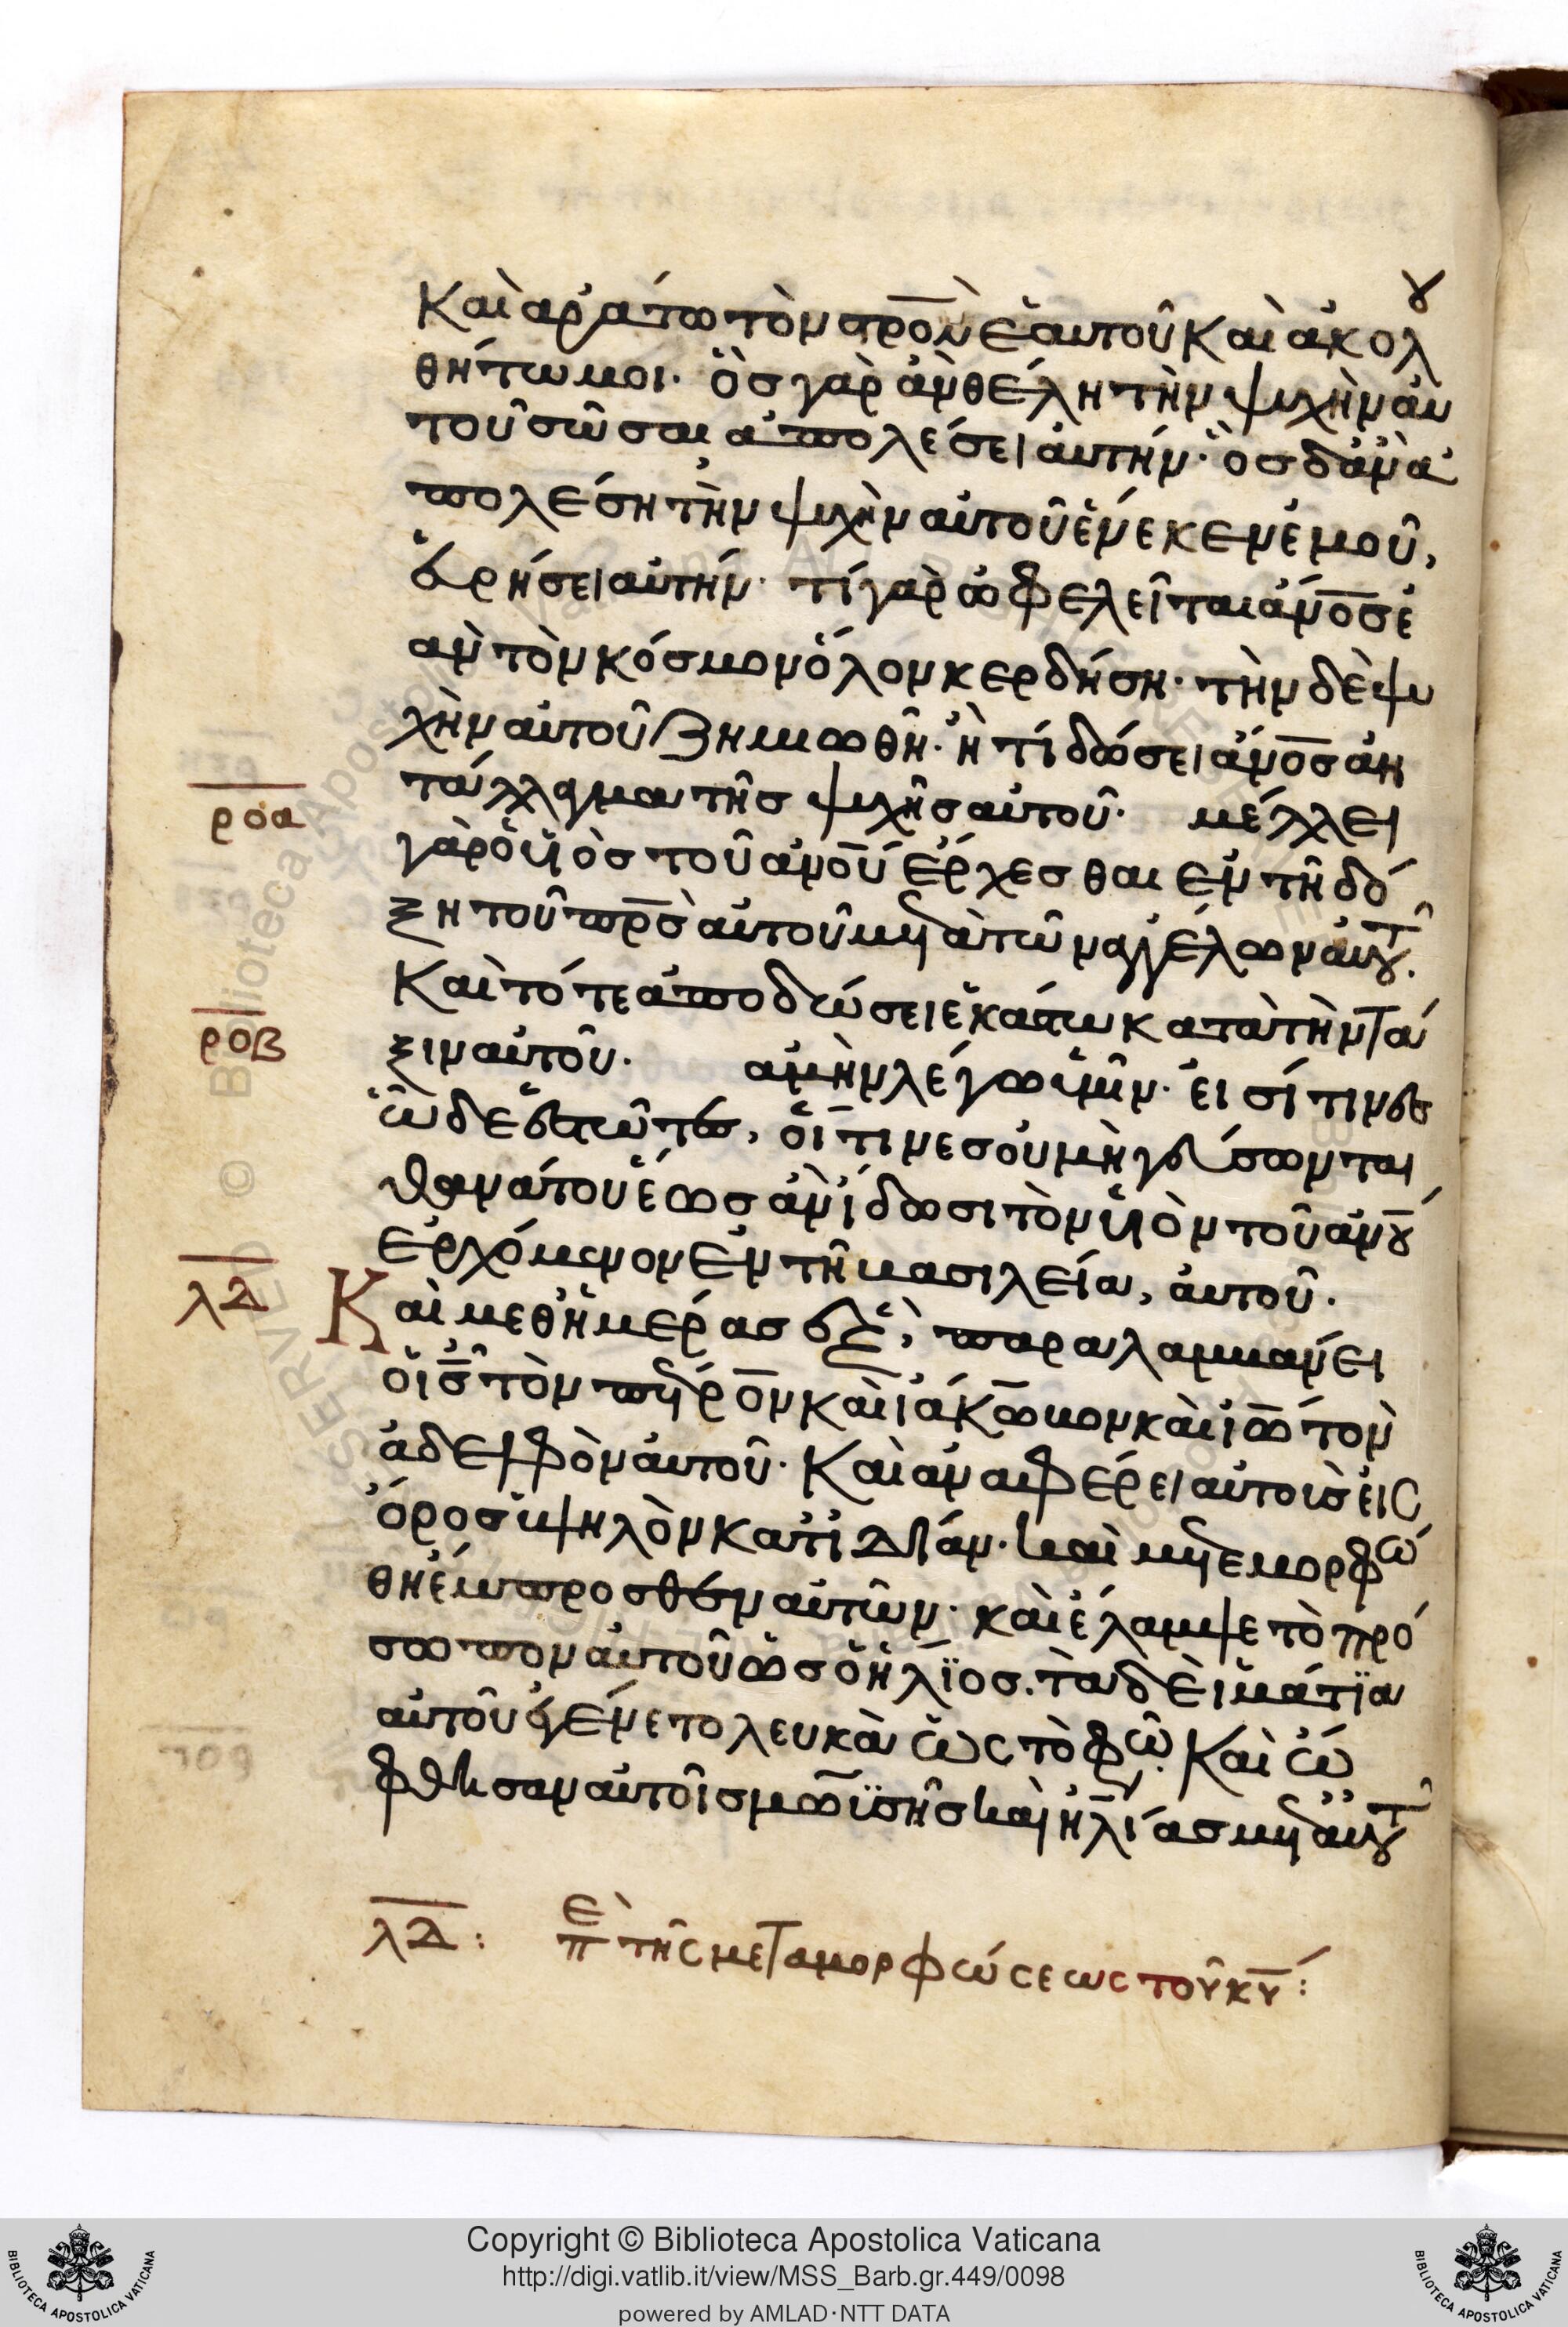 Καὶ ἀράτω τὸν σρο̅ν ἑαυτοῦ Καὶ ἀκολȣ
θήτω μοι· ὃσ γὰρ ἂν θέλη τὴν ψυχὴν αὐ
τοῦ σῶσαι ἀπολέσει αὐτήν· ὃσ δ' ἂν ἀ
πολέση τὴν ψυχὴν αὐτοῦ ἕνεκεν ἐμοῦ,
εὑρήσει αὐτήν· τί γὰρ ὠφελεῖται ἄνο̅σ ἐ
ὰν τὸν κόσμον ὅλον κερδήση· τὴν δὲ ψυ
χὴν αὐτοῦ ζημιωθῆ· ἢ τί δώσει ἄνο̅σ ἀν
τάλλαγμα τῆσ ψυχῆσ αὐτοῦ· μέλλει
ροα
γὰρ ὁ υἱὸσ τοῦ ἀνο̅υ ἔρχεσθαι ἐν τῆ δό
ξη τοῦ πρ̅σ αὐτοῦ μετὰ τῶν ἀγγέλων αὐτȣ̃.
Καὶ τότε ἀποδώσει ἑκάστω κατὰ τὴν τά
ροβ
ξιν αὐτοῦ· ἀμὴν λέγω ὑμῖν· εἰσί τινεσ
ὧδε ἑστῶτεσ, οἵτινεσ οὐ μὴ γεύσωνται
θανάτου ἕωσ ἂν ἴδωσι τὸν υἱὸν τοῦ ἀνȣ̅
ἐρχόμενον ἐν τῆ βασιλεία, αὐτοῦ.
λδ
Καὶ μεθ' ἡμέρασ ἓξ, παραλαμβάνει
ὁ ι̅σ̅ τὸν πέτρον καὶ ἰάκωβον καὶ ἰω̅ τὸν
ἀδελφὸν αὐτοῦ· Καὶ ἀναφέρει αὐτοὺσ εἰς
ὄροσ ὑψηλὸν κατ' ἰδίαν· καὶ μετεμορφώ
θη ἔμπροσθεν αὐτῶν· καὶ ἔλαμψε τὸ πρό
σωπον αὐτοῦ ὡσ ὁ ἥλϊοσ. τὰ δὲ ἱμάτϊα
αὐτοῦ ἐγένετο λευκὰ ὡς τὸ φῶ. Καὶ ὤ
φθησαν αὐτοῖσ μωϋσῆσ καὶ ἠλίασ μετ' αὐτȣ̃
λδ: πε τῆς μεταμορφώσεως τοῦ κυ̅:
Copyright © Biblioteca Apostolica Vaticana
http://digi.vatlib.it/view/MSS_Barb.gr.449/0098
powered by AMLAD·NTT DATA
BIBLIOTECA APOSTOLICA VATICANA
BIBLIOTECA APOSTOLICA VATICANA